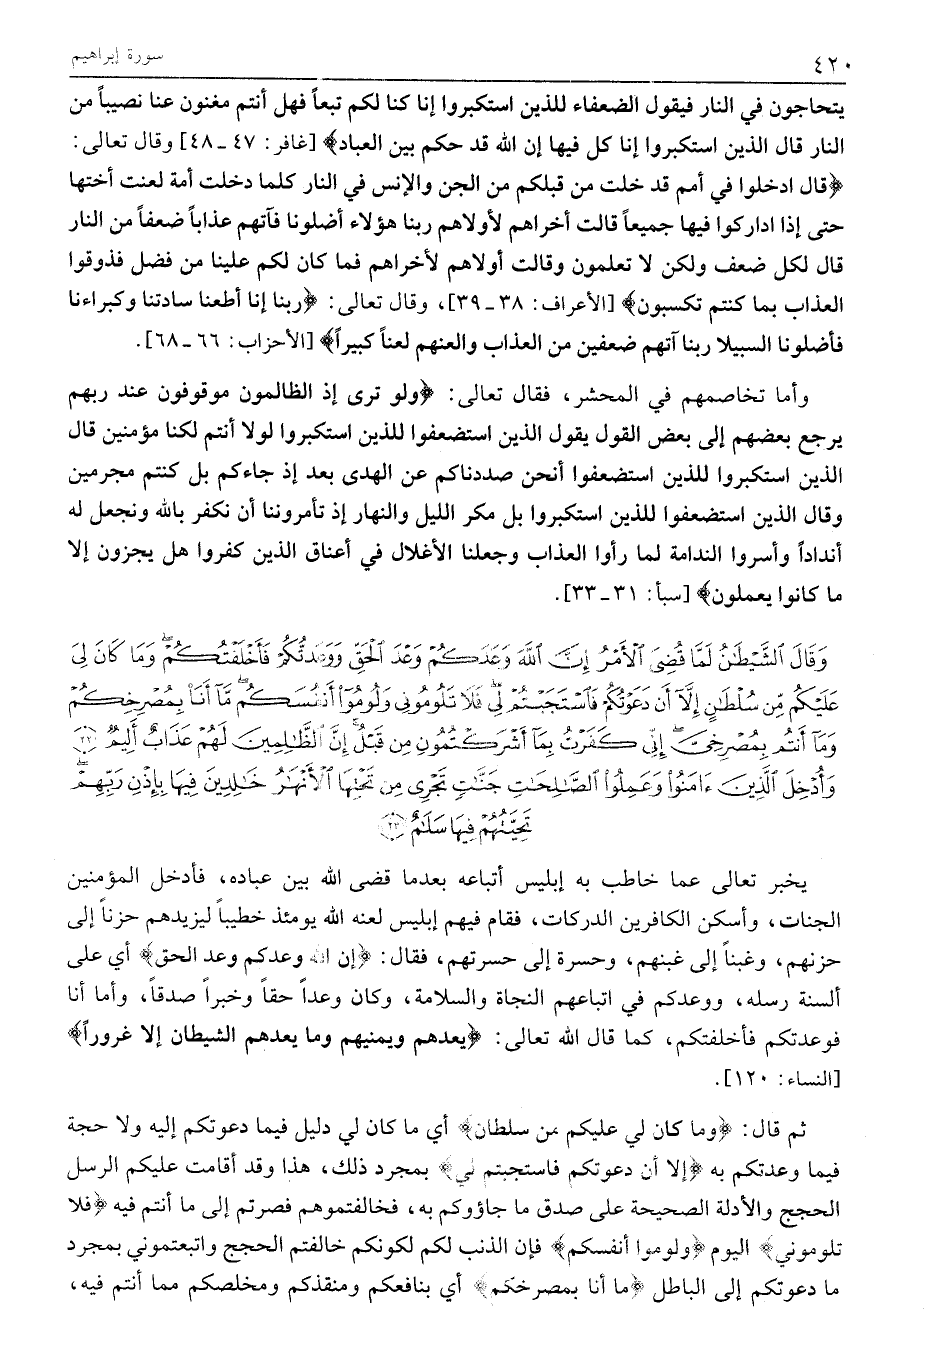 ٤٢٠ سورة إبراهيم
يتحاجون في النار فيقول الضعفاء للذين استكبروا إنا كنا لكم تبعاً فهل أنتم مغنون عنا نصيباً من
النار قال الذين استكبروا إنا كل فيها إن الله قد حكم بين العباد﴾ [غافر: ٤٧ ـ ٤٨] وقال تعالى:
﴿قال ادخلوا في أمم قد خلت من قبلكم من الجن والإنس في النار كلما دخلت أمة لعنت أختها
حتى إذا اداركوا فيها جميعاً قالت أخراهم لأولاهم ربنا هؤلاء أضلونا فآتهم عذاباً ضعفاً من النار
قال لكل ضعف ولكن لا تعلمون وقالت أولاهم لأخراهم فما كان لكم علينا من فضل فذوقوا
العذاب بما كنتم تكسبون﴾ [الأعراف: ٣٨ ـ ٣٩]، وقال تعالى: ﴿ربنا إنا أطعنا سادتنا وكبراءنا
فأضلونا السبيلا ربنا آتهم ضعفين من العذاب والعنهم لعناً كبيراً﴾ [الأحزاب: ٦٦ ـ ٦٨].
وأما تخاصمهم في المحشر، فقال تعالى: ﴿ولو ترى إذ الظالمون موقوفون عند ربهم
يرجع بعضهم إلى بعض القول يقول الذين استضعفوا للذين استكبروا لولا أنتم لكنا مؤمنين قال
الذين استكبروا للذين استضعفوا أنحن صددناكم عن الهدى بعد إذ جاءكم بل كنتم مجرمين
وقال الذين استضعفوا للذين استكبروا بل مكر الليل والنهار إذ تأمروننا أن نكفر بالله ونجعل له
أنداداً وأسروا الندامة لما رأوا العذاب وجعلنا الأغلال في أعناق الذين كفروا هل يجزون إلا
ما كانوا يعملون﴾ [سبأ: ٣١ ـ ٣٣].
وَقَالَ ٱلشَّيْطَٰنُ لَمَّا قُضِىَ ٱلْأَمْرُ إِنَّ ٱللَّهَ وَعَدَكُمْ وَعْدَ ٱلْحَقِّ وَوَعَدتُّكُمْ فَأَخْلَفْتُكُمْ ۖ وَمَا كَانَ لِىَ
عَلَيْكُم مِّن سُلْطَٰنٍ إِلَّآ أَن دَعَوْتُكُمْ فَٱسْتَجَبْتُمْ لِى ۖ فَلَا تَلُومُونِى وَلُومُوٓا۟ أَنفُسَكُم ۖ مَّآ أَنَا۠ بِمُصْرِخِكُمْ
وَمَآ أَنتُم بِمُصْرِخِىَّ ۖ إِنِّى كَفَرْتُ بِمَآ أَشْرَكْتُمُونِ مِن قَبْلُ ۗ إِنَّ ٱلظَّٰلِمِينَ لَهُمْ عَذَابٌ أَلِيمٌ ﴿٢٢﴾
وَأُدْخِلَ ٱلَّذِينَ ءَامَنُوا۟ وَعَمِلُوا۟ ٱلصَّٰلِحَٰتِ جَنَّٰتٍ تَجْرِى مِن تَحْتِهَا ٱلْأَنْهَٰرُ خَٰلِدِينَ فِيهَا بِإِذْنِ رَبِّهِمْ ۖ
تَحِيَّتُهُمْ فِيهَا سَلَٰمٌ ﴿٢٣﴾
يخبر تعالى عما خاطب به إبليس أتباعه بعدما قضى الله بين عباده، فأدخل المؤمنين
الجنات، وأسكن الكافرين الدركات، فقام فيهم إبليس لعنه الله يومئذ خطيباً ليزيدهم حزناً إلى
حزنهم، وغبناً إلى غبنهم، وحسرة إلى حسرتهم، فقال: ﴿إن الله وعدكم وعد الحق﴾ أي على
ألسنة رسله، ووعدكم في اتباعهم النجاة والسلامة، وكان وعداً حقاً وخبراً صدقاً، وأما أنا
فوعدتكم فأخلفتكم، كما قال الله تعالى: ﴿يعدهم ويمنيهم وما يعدهم الشيطان إلا غروراً﴾
[النساء: ١٢٠].
ثم قال: ﴿وما كان لي عليكم من سلطان﴾ أي ما كان لي دليل فيما دعوتكم إليه ولا حجة
فيما وعدتكم به ﴿إلا أن دعوتكم فاستجبتم لي﴾ بمجرد ذلك، هذا وقد أقامت عليكم الرسل
الحجج والأدلة الصحيحة على صدق ما جاؤوكم به، فخالفتموهم فصرتم إلى ما أنتم فيه ﴿فلا
تلوموني﴾ اليوم ﴿ولوموا أنفسكم﴾ فإن الذنب لكم لكونكم خالفتم الحجج واتبعتموني بمجرد
ما دعوتكم إلى الباطل ﴿ما أنا بمصرخكم﴾ أي بنافعكم ومنقذكم ومخلصكم مما أنتم فيه،